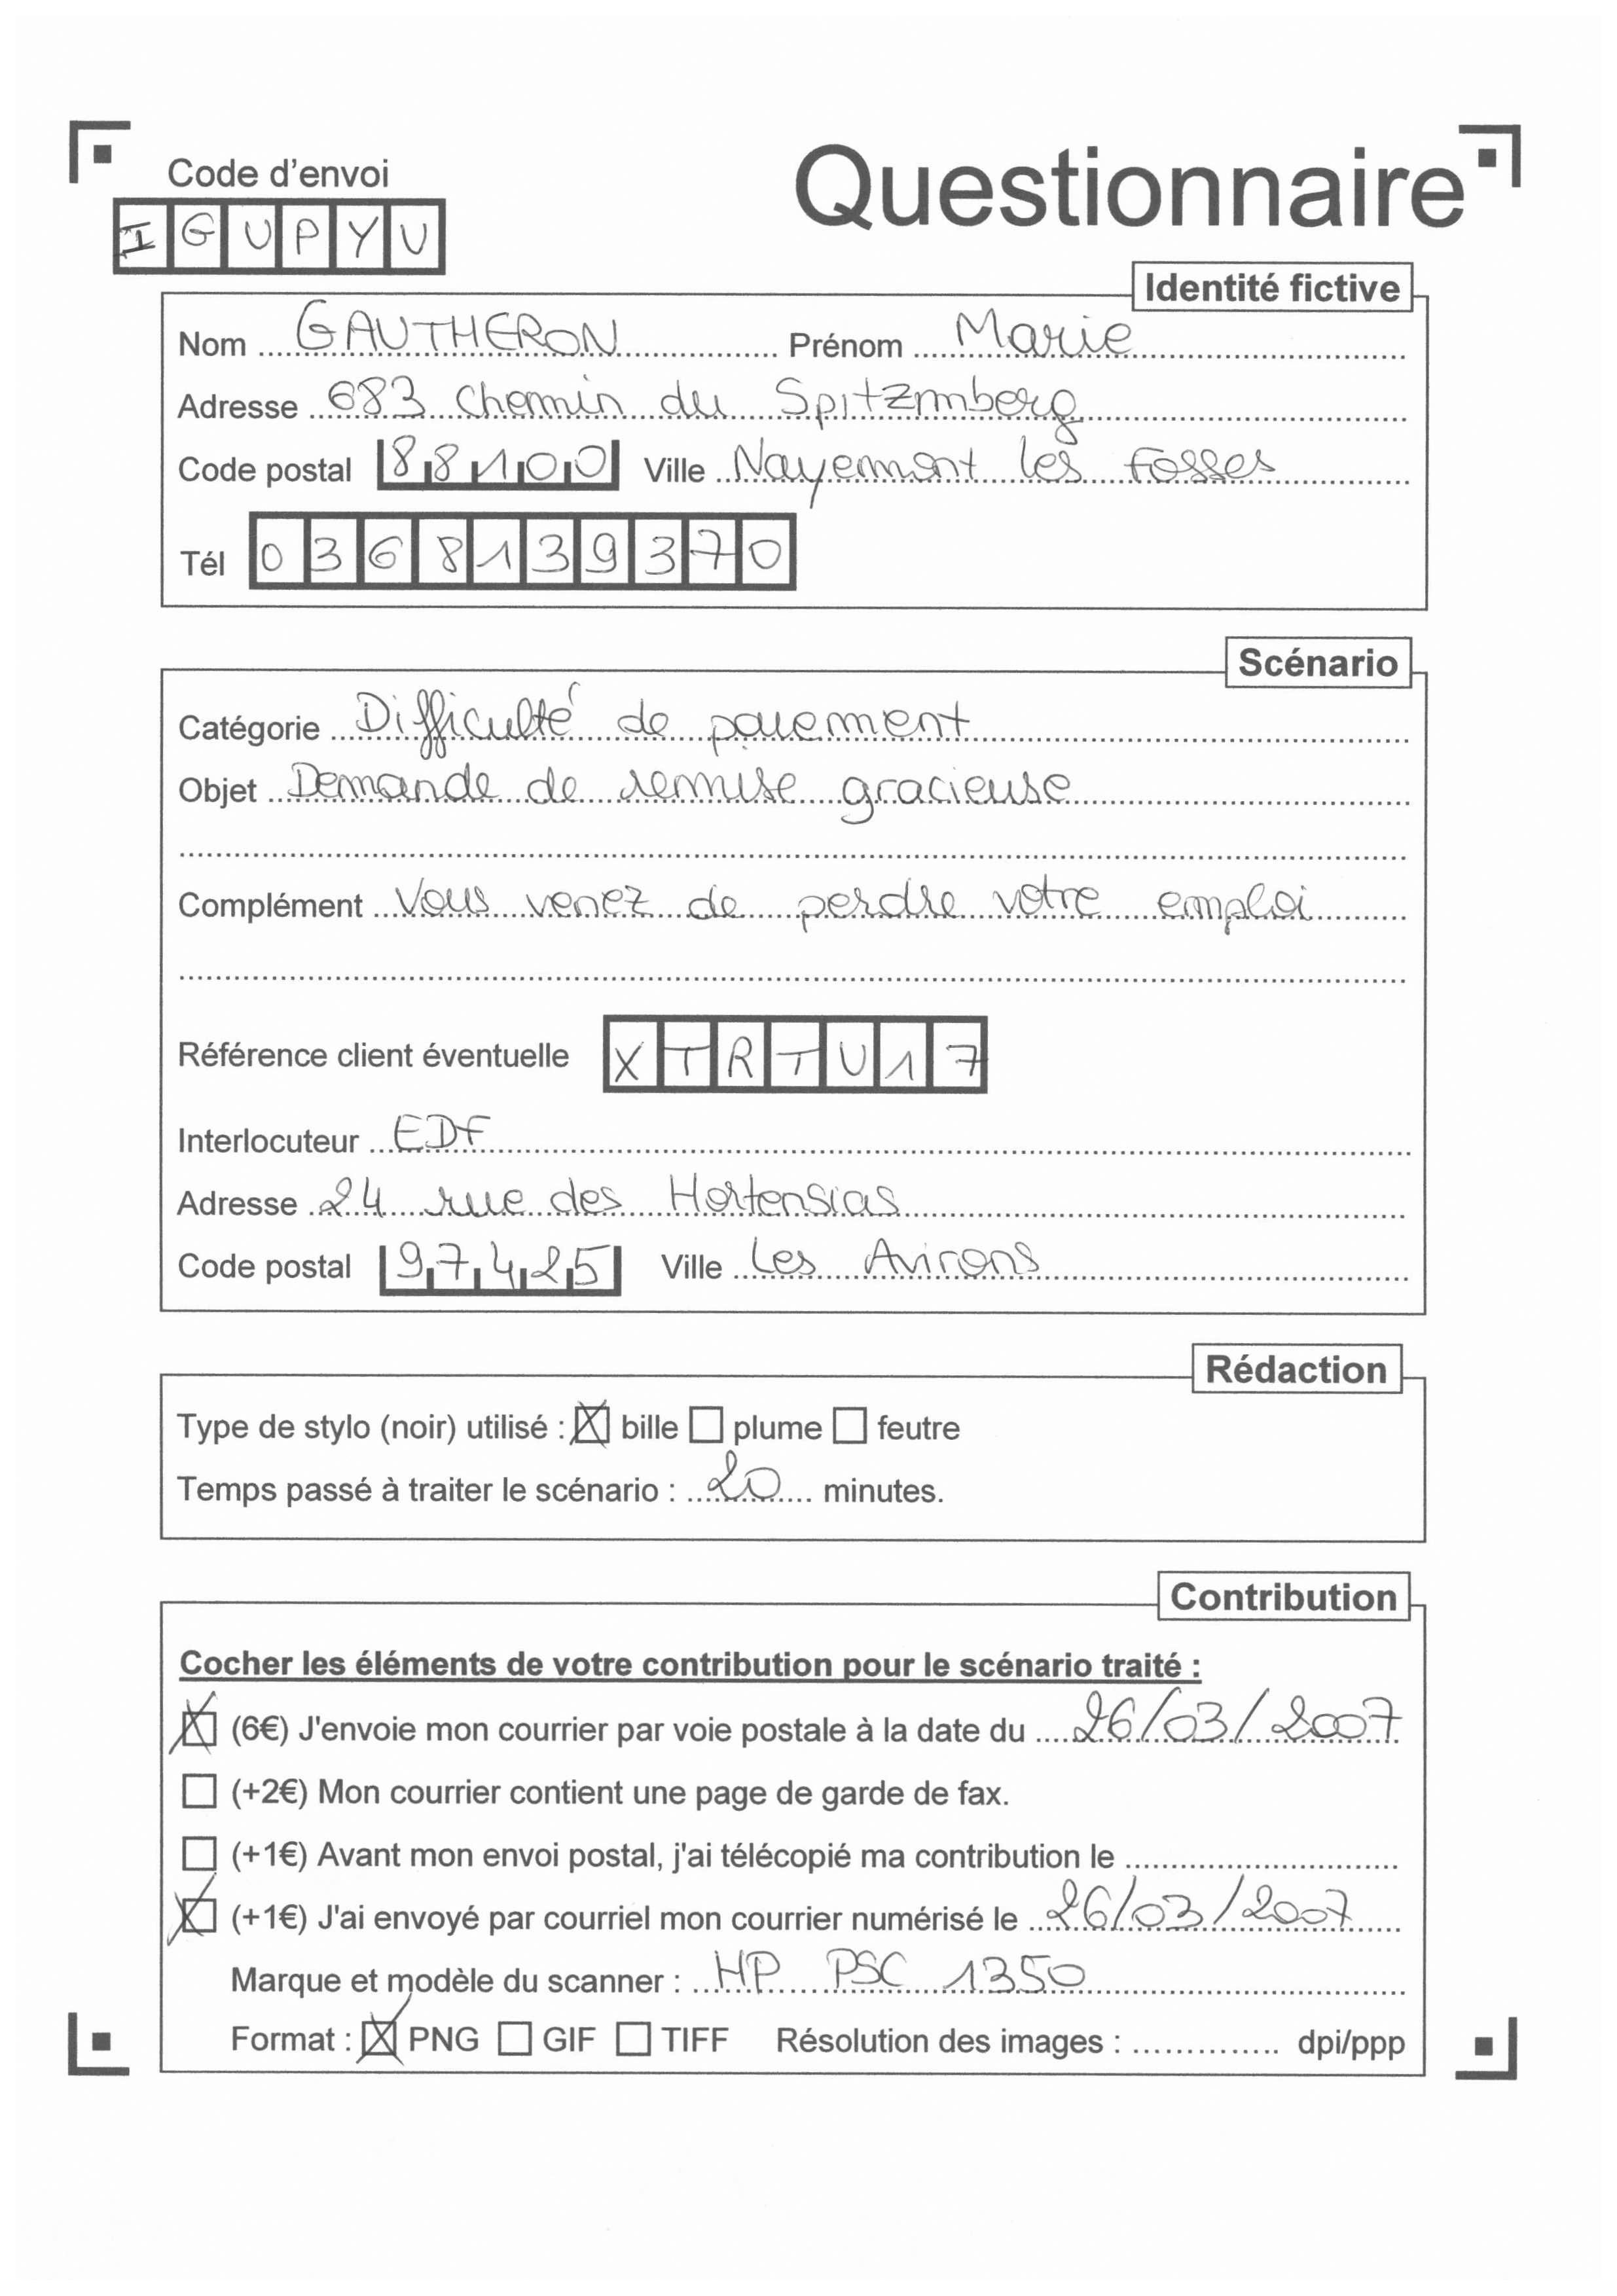 Code d'envoi
Questionnaire
IGUPYU
Identité fictive
Nom GAUTHERON Prénom Marie
Adresse 683 chemin du Spitzmberg
Code postal 88100 Ville Nayemont les Fosses
Tél 0368139370
Scénario
Catégorie Difficulté de paiement
Objet Demande de remise gracieuse
Complément Vous venez de perdre votre emploi
Référence client éventuelle XTRTU17
Interlocuteur EDF
Adresse 24 rue des Hortensias
Code postal 97425 Ville Les Avirons
Rédaction
Type de stylo (noir) utilisé : ☒ bille ☐ plume ☐ feutre
Temps passé à traiter le scénario : 20 minutes.
Contribution
Cocher les éléments de votre contribution pour le scénario traité :
☒ (6€) J'envoie mon courrier par voie postale à la date du 26/03/2007
☐ (+2€) Mon courrier contient une page de garde de fax.
☐ (+1€) Avant mon envoi postal, j'ai télécopié ma contribution le ..............................
☒ (+1€) J'ai envoyé par courriel mon courrier numérisé le 26/03/2007
Marque et modèle du scanner : HP PSC 1350
Format : ☒ PNG ☐ GIF ☐ TIFF Résolution des images : .............. dpi/ppp